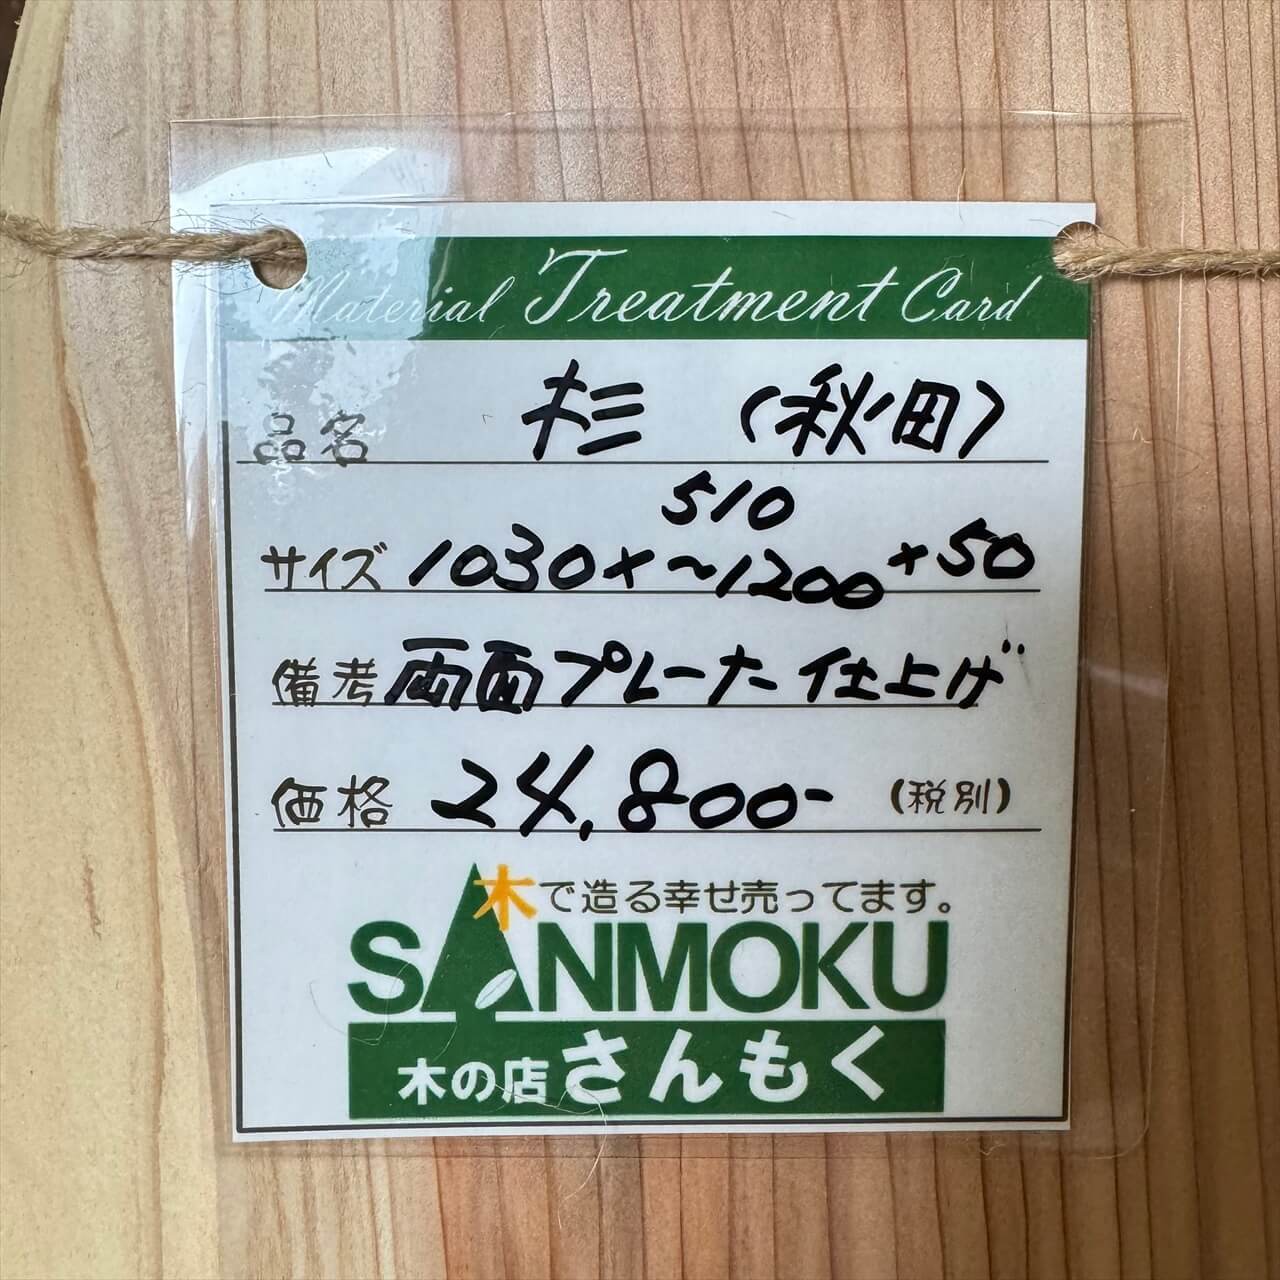 Material Treatment Card
品名 杉 (秋田)
510
サイズ 1030×~1200×50
備考 両面プレーナー仕上げ
価格 24,800- (税別)
木で造る幸せ売ってます。
SANMOKU
木の店 さんもく